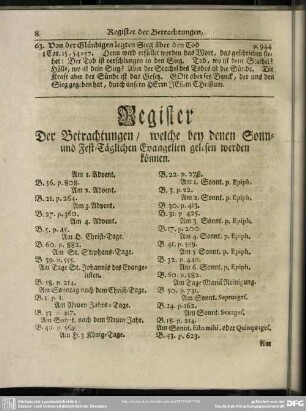 8 Register der Betrachtungen.
63. Von der Gläubigen letzten Sieg über den Tod p.944
1 Cor. 15, 54=57. Denn wird erfüllet werden das Wort, das geschrieben ste-
het: Der Tod ist verschlungen in den Sieg. Tod, wo ist dein Stachel?
Hölle, wo ist dein Sieg? Aber der Stachel des Todes ist die Sünde. Die
Kraft aber der Sünde ist das Gesetz. GOtt aber sey Danck, der uns den
Sieg gegeben hat, durch unsern HErrn JEsum Christum.
Register
Der Betrachtungen / welche bey denen Sonn-
und Fest-Täglichen Evangelien gelesen werden
können.
Am 1. Advent.
B. 56. p. 808.
Am 2. Advent.
B. 21. p. 264.
Am 3. Advent.
B. 27. p. 360.
Am 4. Advent.
B. 5. p. 45.
Am H. Christ-Tage.
B. 60. p. 882.
Am St. Stephans-Tage.
B. 39. p. 555.
Am Tage St. Johannis des Evange-
listen.
B. 18. p. 214.
Am Sonntag nach dem Christ-Tage.
B. 1. p. 1.
Am Neuen Jahrs-Tage.
B. 33. p. 457.
Am Sonnt. nach dem Neuen Jahr.
B. 40. p. 569.
Am H. 3 König-Tage.
B. 22. p. 278.
Am 1. Sonnt. p. Epiph.
B. 3. p. 22.
Am 2. Sonnt. p. Epiph.
B. 30. p. 413.
B. 31. p. 425.
Am 3. Sonnt. p. Epiph.
B. 17. p. 200.
Am 4. Sonnt. p. Epiph.
B. 41. p. 589.
Am 5. Sonnt. p. Epiph.
B. 32. p. 440.
Am 6. Sonnt. p. Epiph.
B. 60. p. 882.
Am Tage Mariä Reinigung.
B. 50. p. 731.
Am Sonnt. Septuages.
B. 14. p. 162.
Am Sonnt. Sexages.
B. 18. p. 214.
Am Sonnt. Esto mihi, oder Quinquages.
B. 43. p. 623.
Am